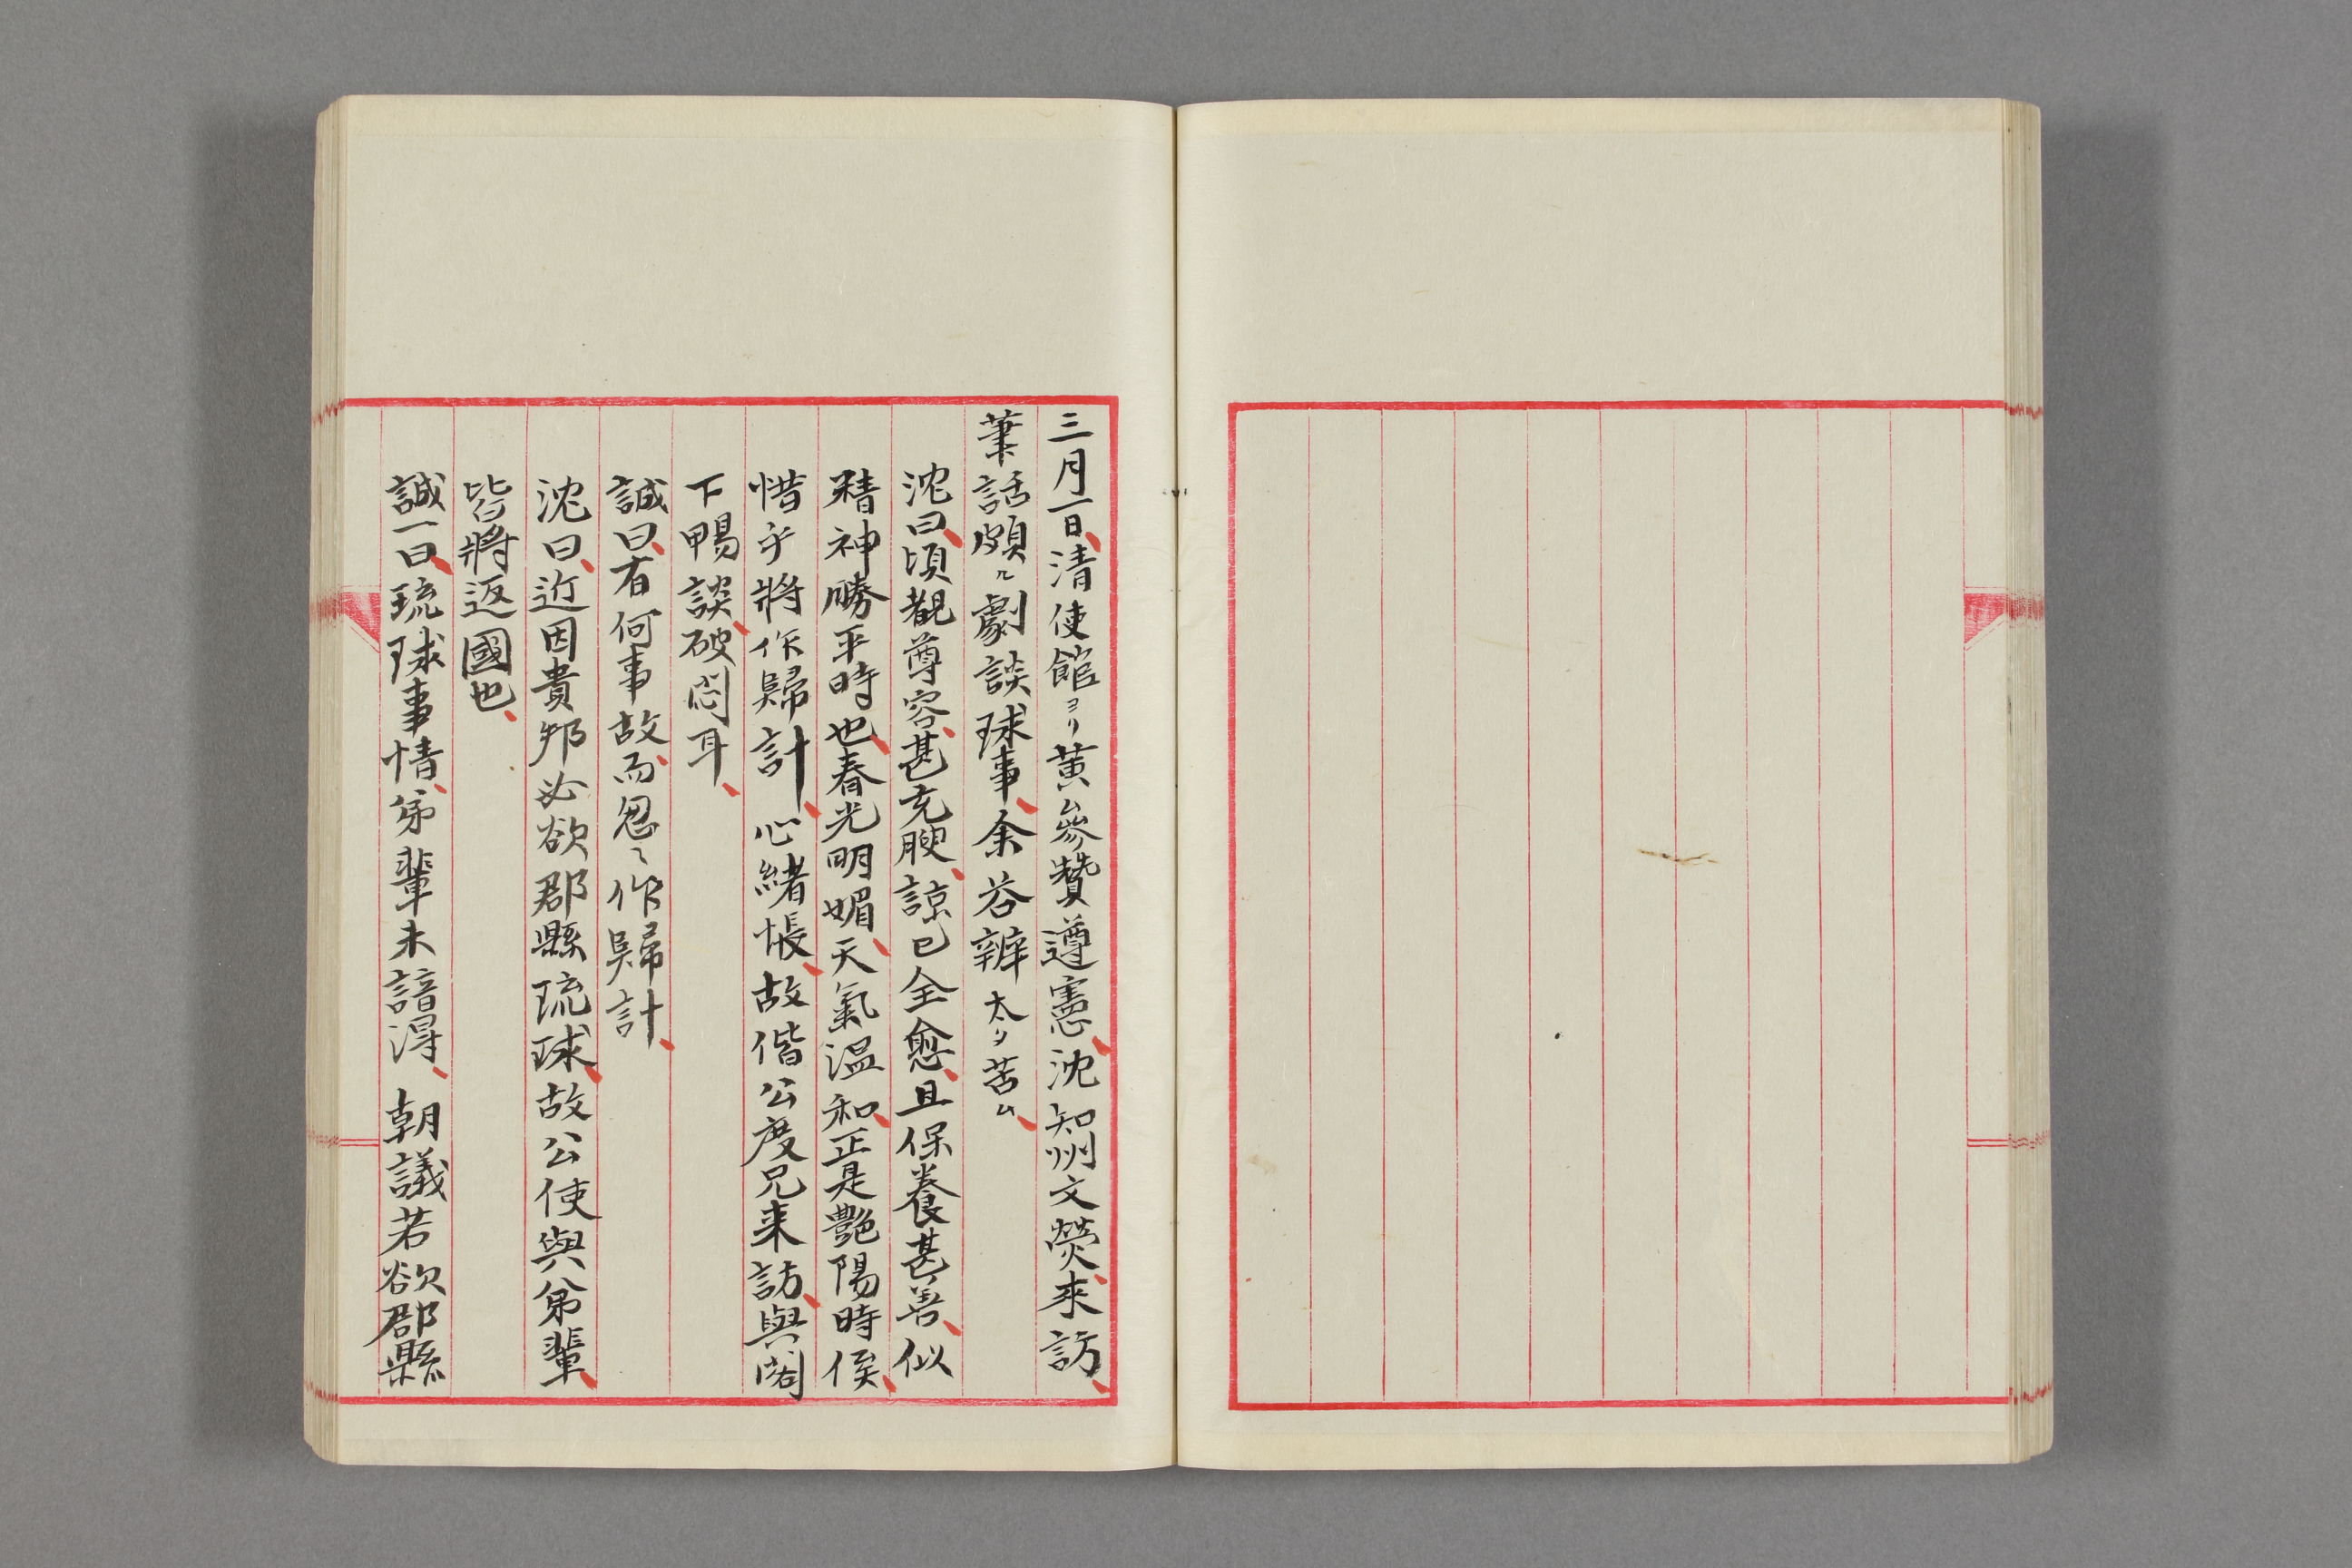 三月一日、清使館ヨリ黄參贊遵憲、沈知州文熒、來訪、
筆話頗ル劇談球事、余答辨太タ苦ム、
沈曰、頃覩尊容、甚充腴、諒已全愈、且保養甚善、似
精神勝平時也、春光明媚、天氣温和、正是艷陽時候、
惜乎將作歸計、心緒悵、故偕公度兄来訪、與閣
下暢談、破悶耳、
誠曰、有何事故、而忽〻作歸計、
沈曰、近因貴邦必欲郡縣琉球、故公使與弟輩、
皆將返國也、
誠一曰、琉球事情、弟輩未諳得、朝議若欲郡縣